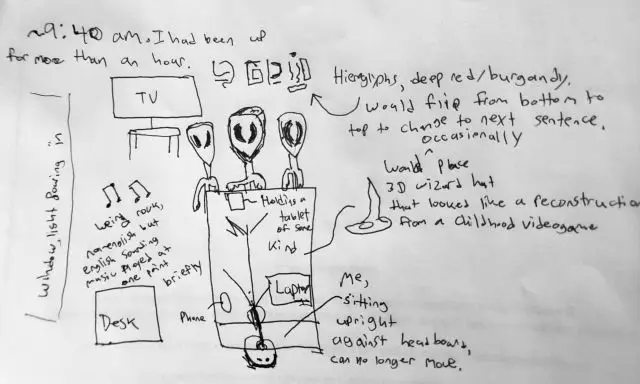 ~9:40 am. I had been up
for more than an hour.
TV
Hieroglyphs, deep red/burgandy.
would flip from bottom to
top to change to next sentence.
occasionally
would place
3D wizard hat
that looked like a reconstruction
from a childhood videogame
Window, light pouring in
weird rock,
non-english but
english sounding
music played at
one point
briefly
Holding a
tablet
of some
kind
Laptop
Phone
Desk
Me,
sitting
upright
against headboard,
can no longer move.